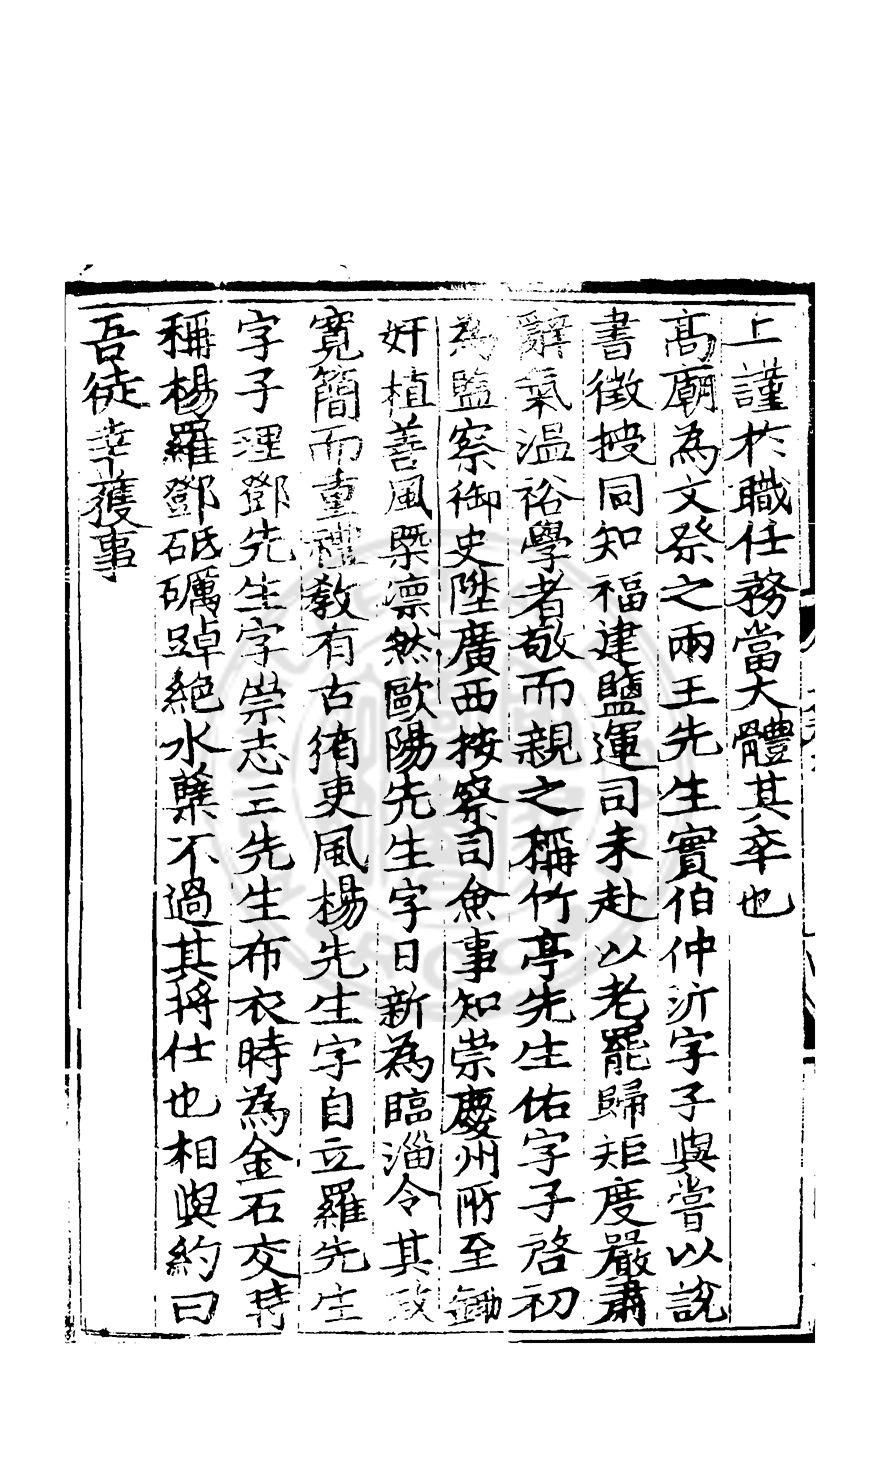 上謹於職任務當大體其卒也
高廟為文祭之兩王先生實伯仲沂字子與嘗以說
書徵授同知福建鹽運司未赴以老罷歸矩度嚴肅
辭氣溫裕學者敬而親之稱竹亭先生佑字子啓初
為監察御史陞廣西按察司僉事知崇慶州所至鋤
奸植善風槩凛然歐陽先生字日新為臨淄令其政
寬簡而重禮教有古循吏風楊先生字自立羅先生
字子理鄧先生字崇志三先生布衣時為金石交時
稱楊羅鄧砥礪踔絶水蘖不過其將仕也相與約曰
吾徒幸獲事